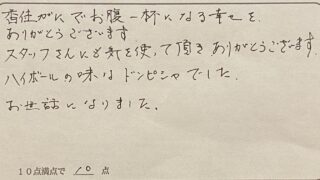 香住ガニでお腹一杯になる幸せを、
ありがとうございます。
スタッフさんにも気を使って頂きありがとうございます。
ハイボールの味はドンピシャでした。
お世話になりました。
10点満点で 10 点